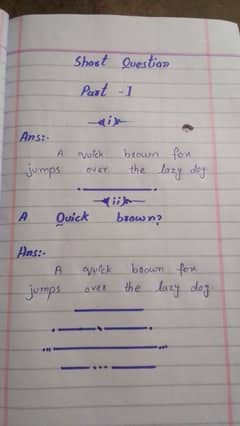 Short Question
Part - I
(i)
Ans:-
A quick brown fox
jumps over the lazy dog
(ii)
A Quick brown?
Ans:-
A quick brown fox
jumps over the lazy dog.